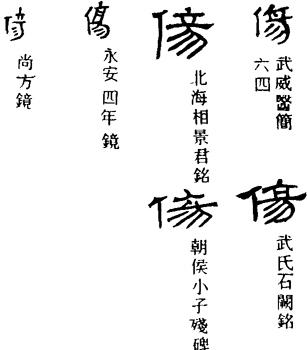 傷
武威醫簡
六四
傷
武氏石闕銘
傷
北海相景君銘
傷
朝侯小子殘碑
傷
永安四年鏡
傷
尚方鏡